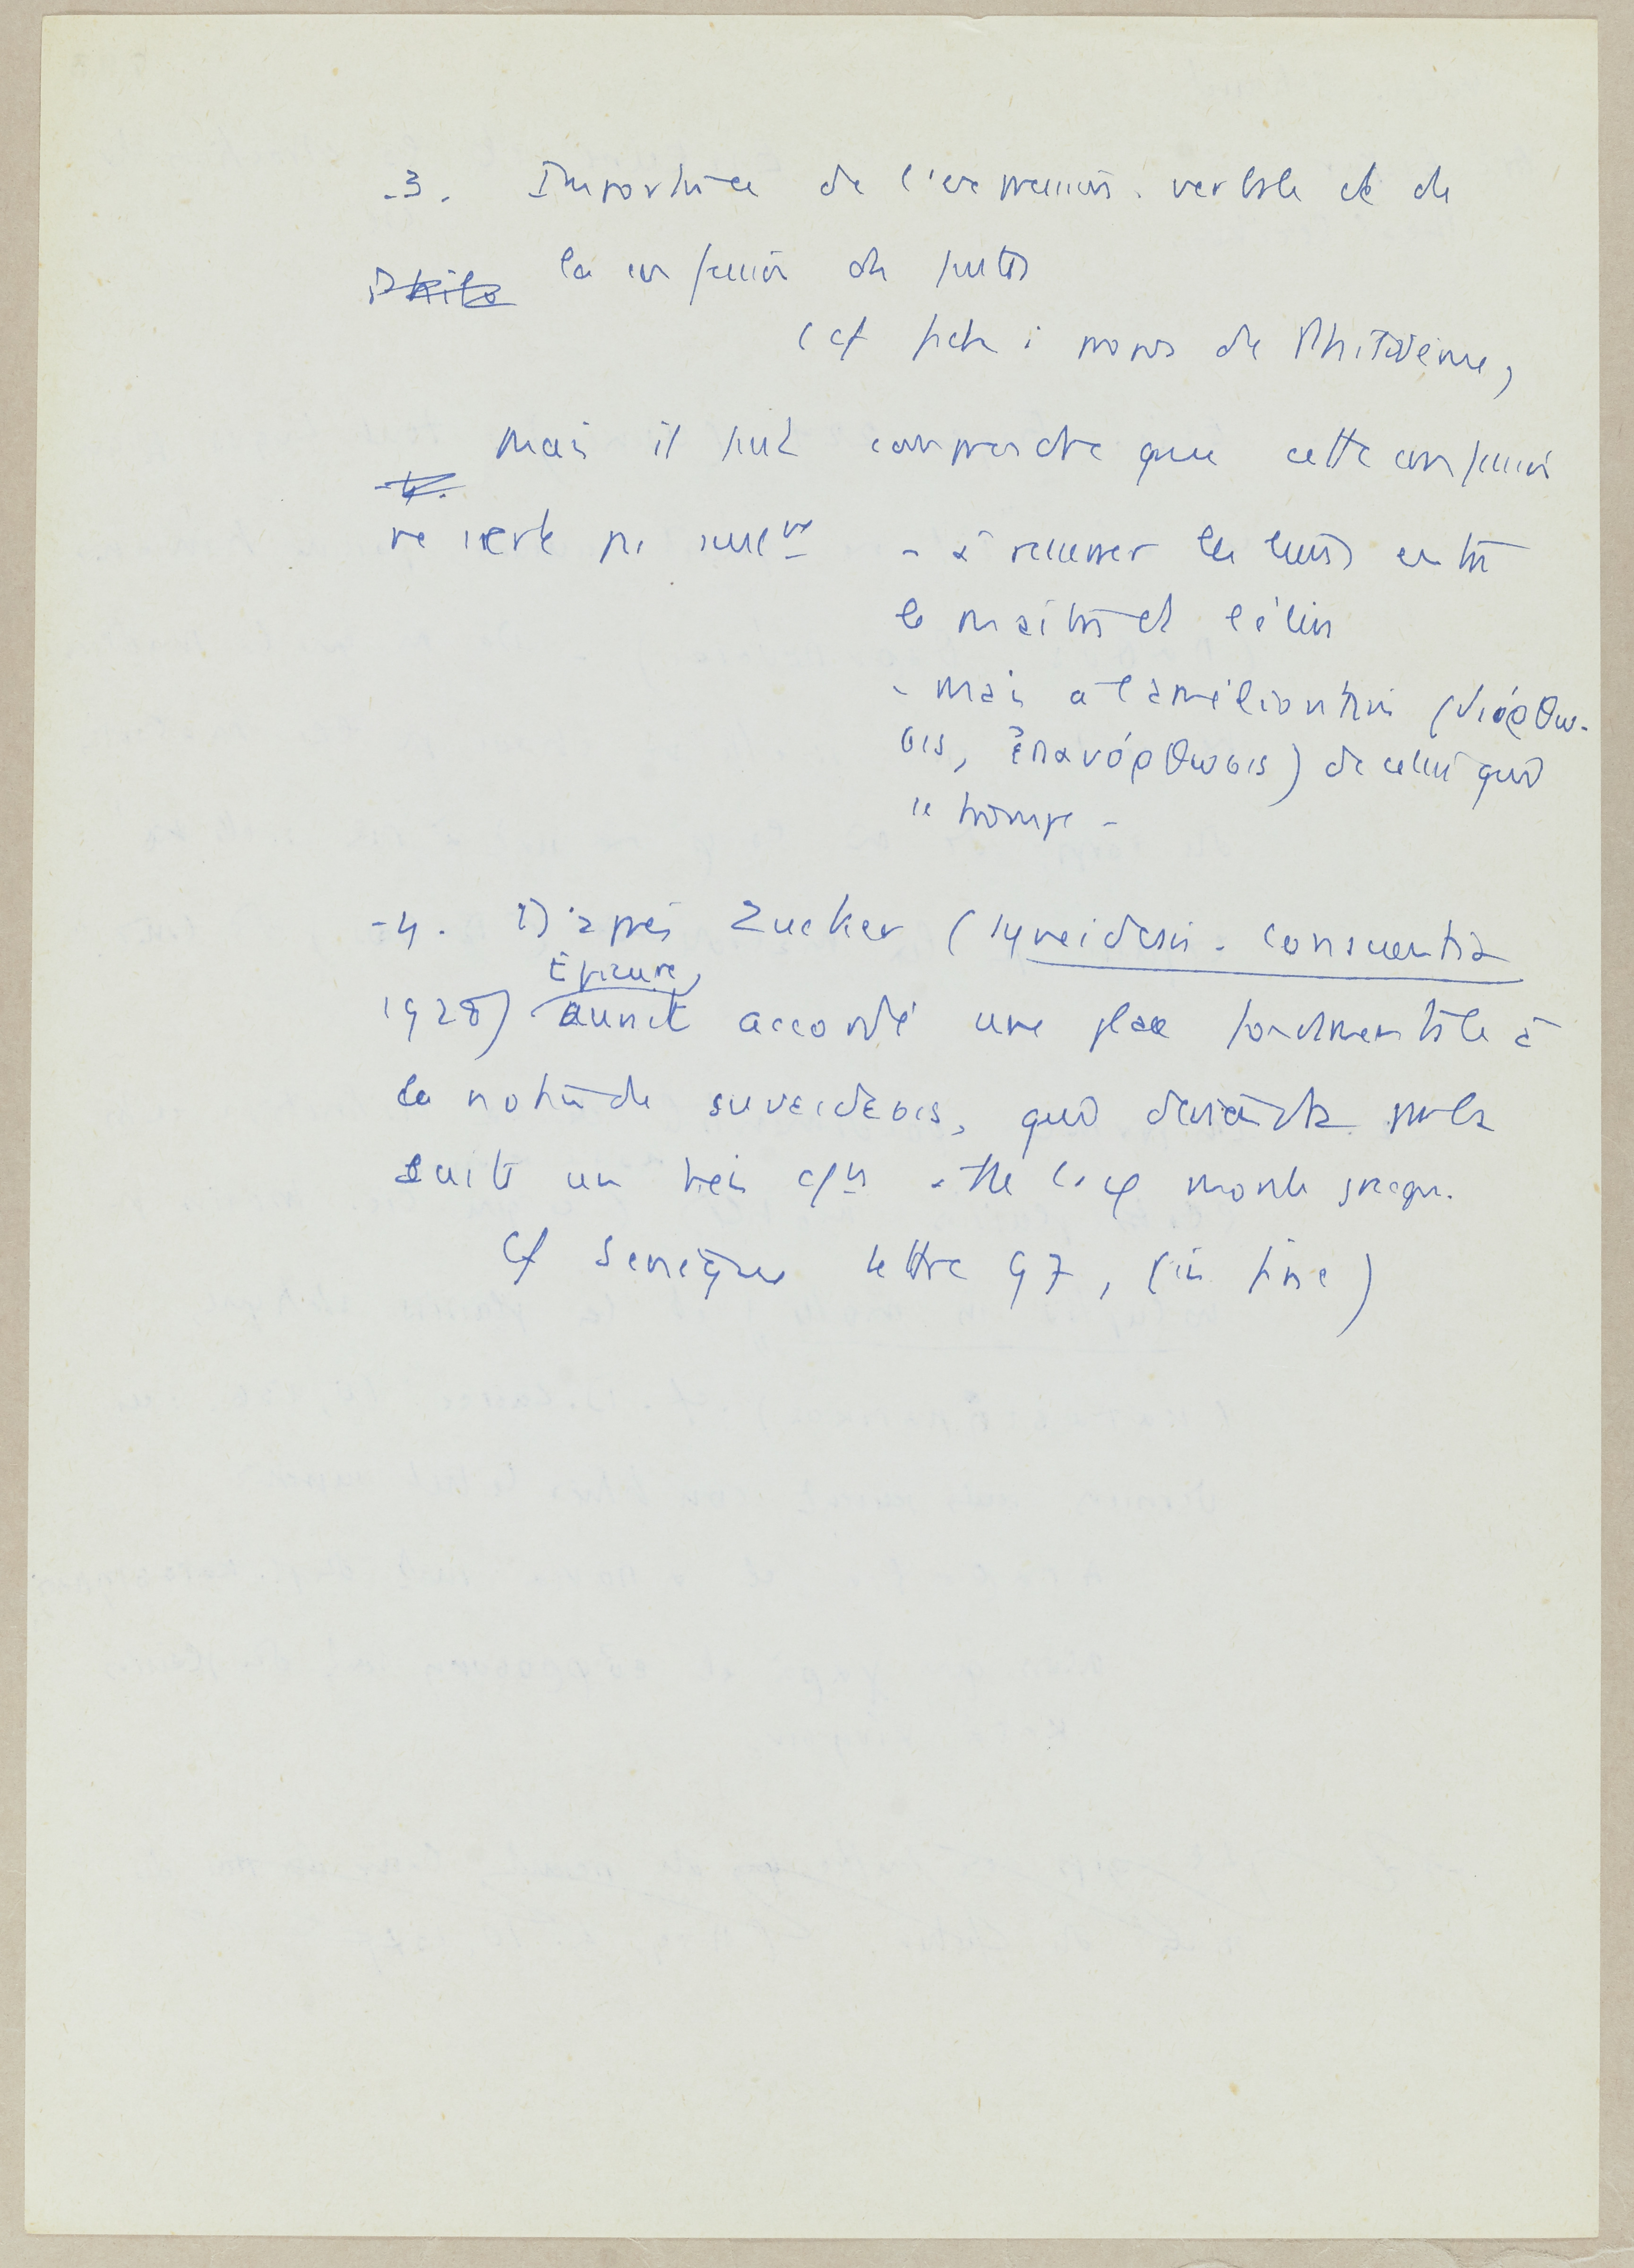 -3. Importance de l'expression verbale et de
la confession des fautes
(cf fiche : propos de Philodème,
Mais il faut comprendre que cette confession
ne sert pas seulemt - à resserrer les liens entre
le maître et l'élève
- mais à l'amélioration (διόρθω-
σις, ἐπανόρθωσις) de celui qui
se trompe -
-4. D'après Zucker (Syneidesis - conscientia
1928) Épicure
aurait accordé une place fondamentale à
la notion de suveidεσις, qui deviendra par la
suite un
morale grecque.
Cf Senèque lettre 97, (in fine)